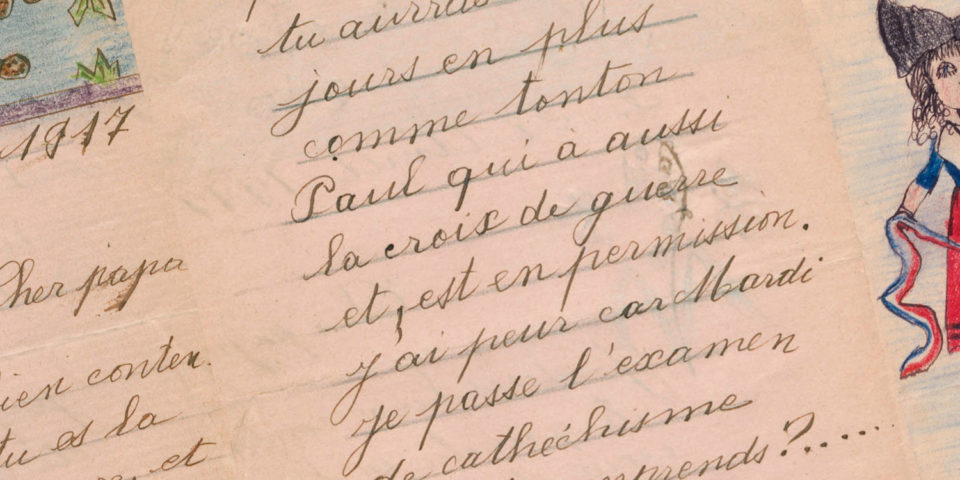 1917
Cher papa
bien conten.
tu as la
et
tu aurras
jours en plus
comme tonton
Paul qui à aussi
la croix de guerre
et, est en permission.
j'ai peur car Mardi
je passe l'examen
de cathéchisme
prends?.....